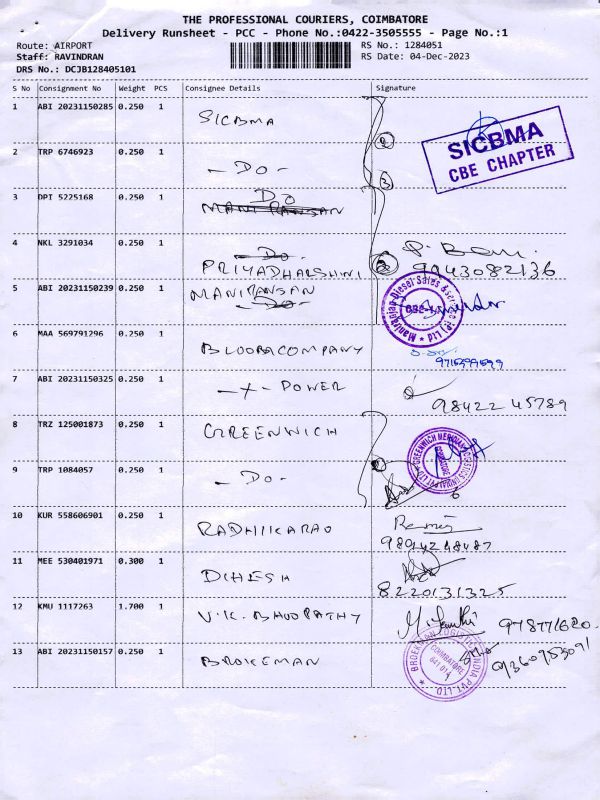 THE PROFESSIONAL COURIERS, COIMBATORE
Delivery Runsheet - PCC - Phone No.:0422-3505555 - Page No.:1
Route: AIRPORT RS No.: 1284051
Staff: RAVINDRAN RS Date: 04-Dec-2023
DRS No.: DCJB128405101
S No Consignment No Weight PCS Consignee Details Signature
1 ABI 20231150285 0.250 1 SICBMA
SICBMA
CBE CHAPTER
2 TRP 6746923 0.250 1 - DO -
3 DPI 5225168 0.250 1 DO
MANIRANJAN
4 NKL 3291034 0.250 1 DO
PRIYADHARSHINI 9043082136
5 ABI 20231150239 0.250 1 MANIRANJAN
DO
6 MAA 569791296 0.250 1 BLOOBACOMPANY
7 ABI 20231150325 0.250 1 - X - POWER 98422 45789
8 TRZ 125001873 0.250 1 GREENWICH
9 TRP 1084057 0.250 1 - DO -
10 KUR 558606901 0.250 1 RADHIKARAO
11 MEE 530401971 0.300 1 DIHESH
8220131325
12 KMU 1117263 1.700 1 V.K. BHOOPATHY
13 ABI 20231150157 0.250 1 BROKEMAN
COIMBATORE